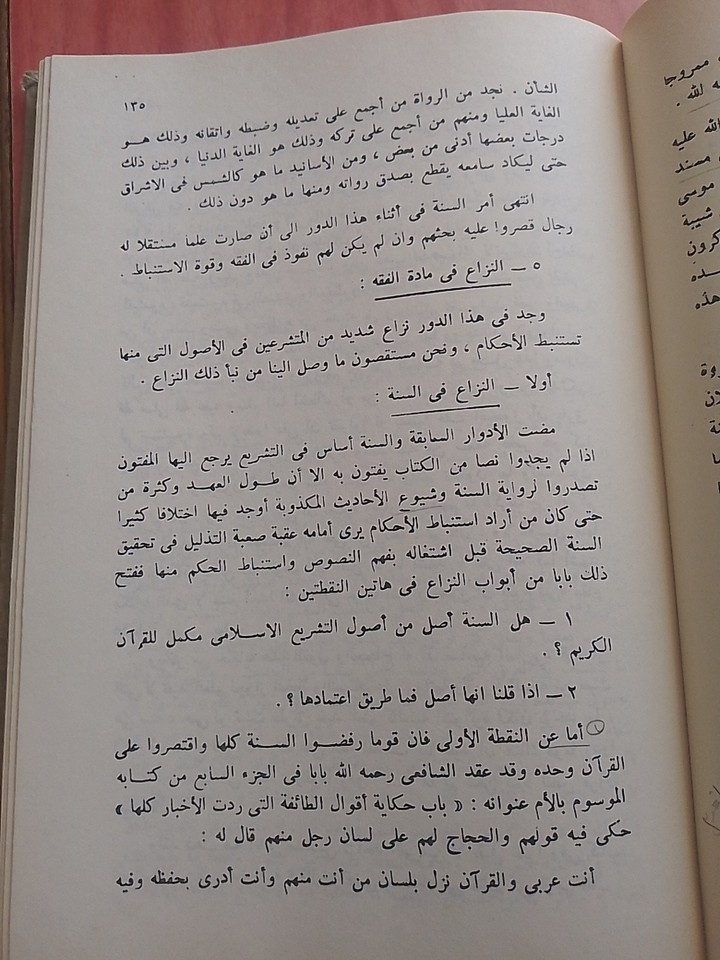 ١٣٥
الشأن . نجد من الرواة من أجمع على تعديله وضبطه واتقانه وذلك هــو
الغاية العليا ومنهم من أجمع على تركه وذلك هو الغاية الدنيا ، وبين ذلك
درجات بعضها أدنى من بعض ، ومن الأسانيد ما هو كالشمس فى الاشراق
حتى ليكاد سامعه يقطع بصدق رواته ومنها ما هو دون ذلك .
انتهى أمر السنة فى أثناء هذا الدور الى أن صارت علما مستقلا له
رجال قصروا عليه بحثهم وان لم يكن لهم نفوذ فى الفقه وقوة الاستنباط .
٥ ــ النزاع فى مادة الفقه :
وجد فى هذا الدور نزاع شديد من المتشرعين فى الأصول التى منها
تستنبط الأحكام ، ونحن مستقصون ما وصل الينا من نبأ ذلك النزاع .
أولا ــ النزاع فى السنة :
مضت الأدوار السابقة والسنة أساس فى التشريع يرجع اليها المفتون
اذا لم يجدوا نصا من الكتاب يفتون به الا أن طول العهد وكثرة من
تصدروا لرواية السنة وشيوع الأحاديث المكذوبة أوجد فيها اختلافا كثيرا
حتى كان من أراد استنباط الأحكام يرى أمامه عقبة صعبة التذليل فى تحقيق
السنة الصحيحة قبل اشتغاله بفهم النصوص واستنباط الحكم منها ففتح
ذلك بابا من أبواب النزاع فى هاتين النقطتين :
١ ــ هل السنة أصل من أصول التشريع الاسلامى مكمل للقرآن
الكريم ؟ .
٢ ــ اذا قلنا انها أصل فما طريق اعتمادها ؟ .
أما عن النقطة الأولى فان قوما رفضــوا السنة كلها واقتصروا على
القرآن وحده وقد عقد الشافعى رحمه الله بابا فى الجزء السابع من كتابه
الموسوم بالأم عنوانه : « باب حكاية أقوال الطائفة التى ردت الأخبار كلها »
حكى فيه قولهم والحجاج لهم على لسان رجل منهم قال له :
أنت عربى والقرآن نزل بلسان من أنت منهم وأنت أدرى بحفظه وفيه
ممروجا
لله .
الله عليه
مسند
موسى
شيبة
هذه